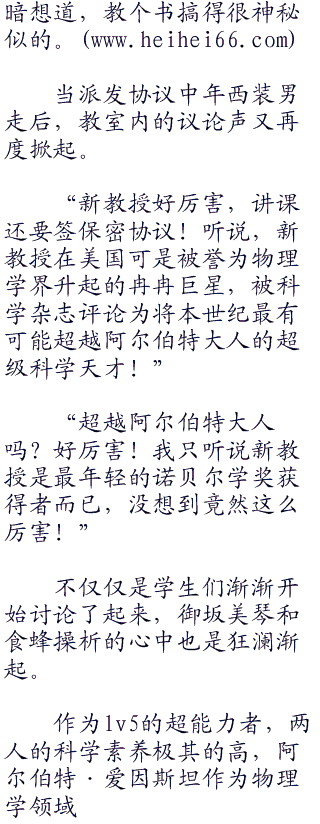 暗想道，教个书搞得很神秘
似的。(www.heihei66.com)
当派发协议中年西装男
走后，教室内的议论声又再
度掀起。
“新教授好厉害，讲课
还要签保密协议！听说，新
教授在美国可是被誉为物理
学界升起的冉冉巨星，被科
学杂志评论为将本世纪最有
可能超越阿尔伯特大人的超
级科学天才！”
“超越阿尔伯特大人
吗？好厉害！我只听说新教
授是最年轻的诺贝尔学奖获
得者而已，没想到竟然这么
厉害！”
不仅仅是学生们渐渐开
始讨论了起来，御坂美琴和
食蜂操析的心中也是狂澜渐
起。
作为lv5的超能力者，两
人的科学素养极其的高，阿
尔伯特·爱因斯坦作为物理
学领域